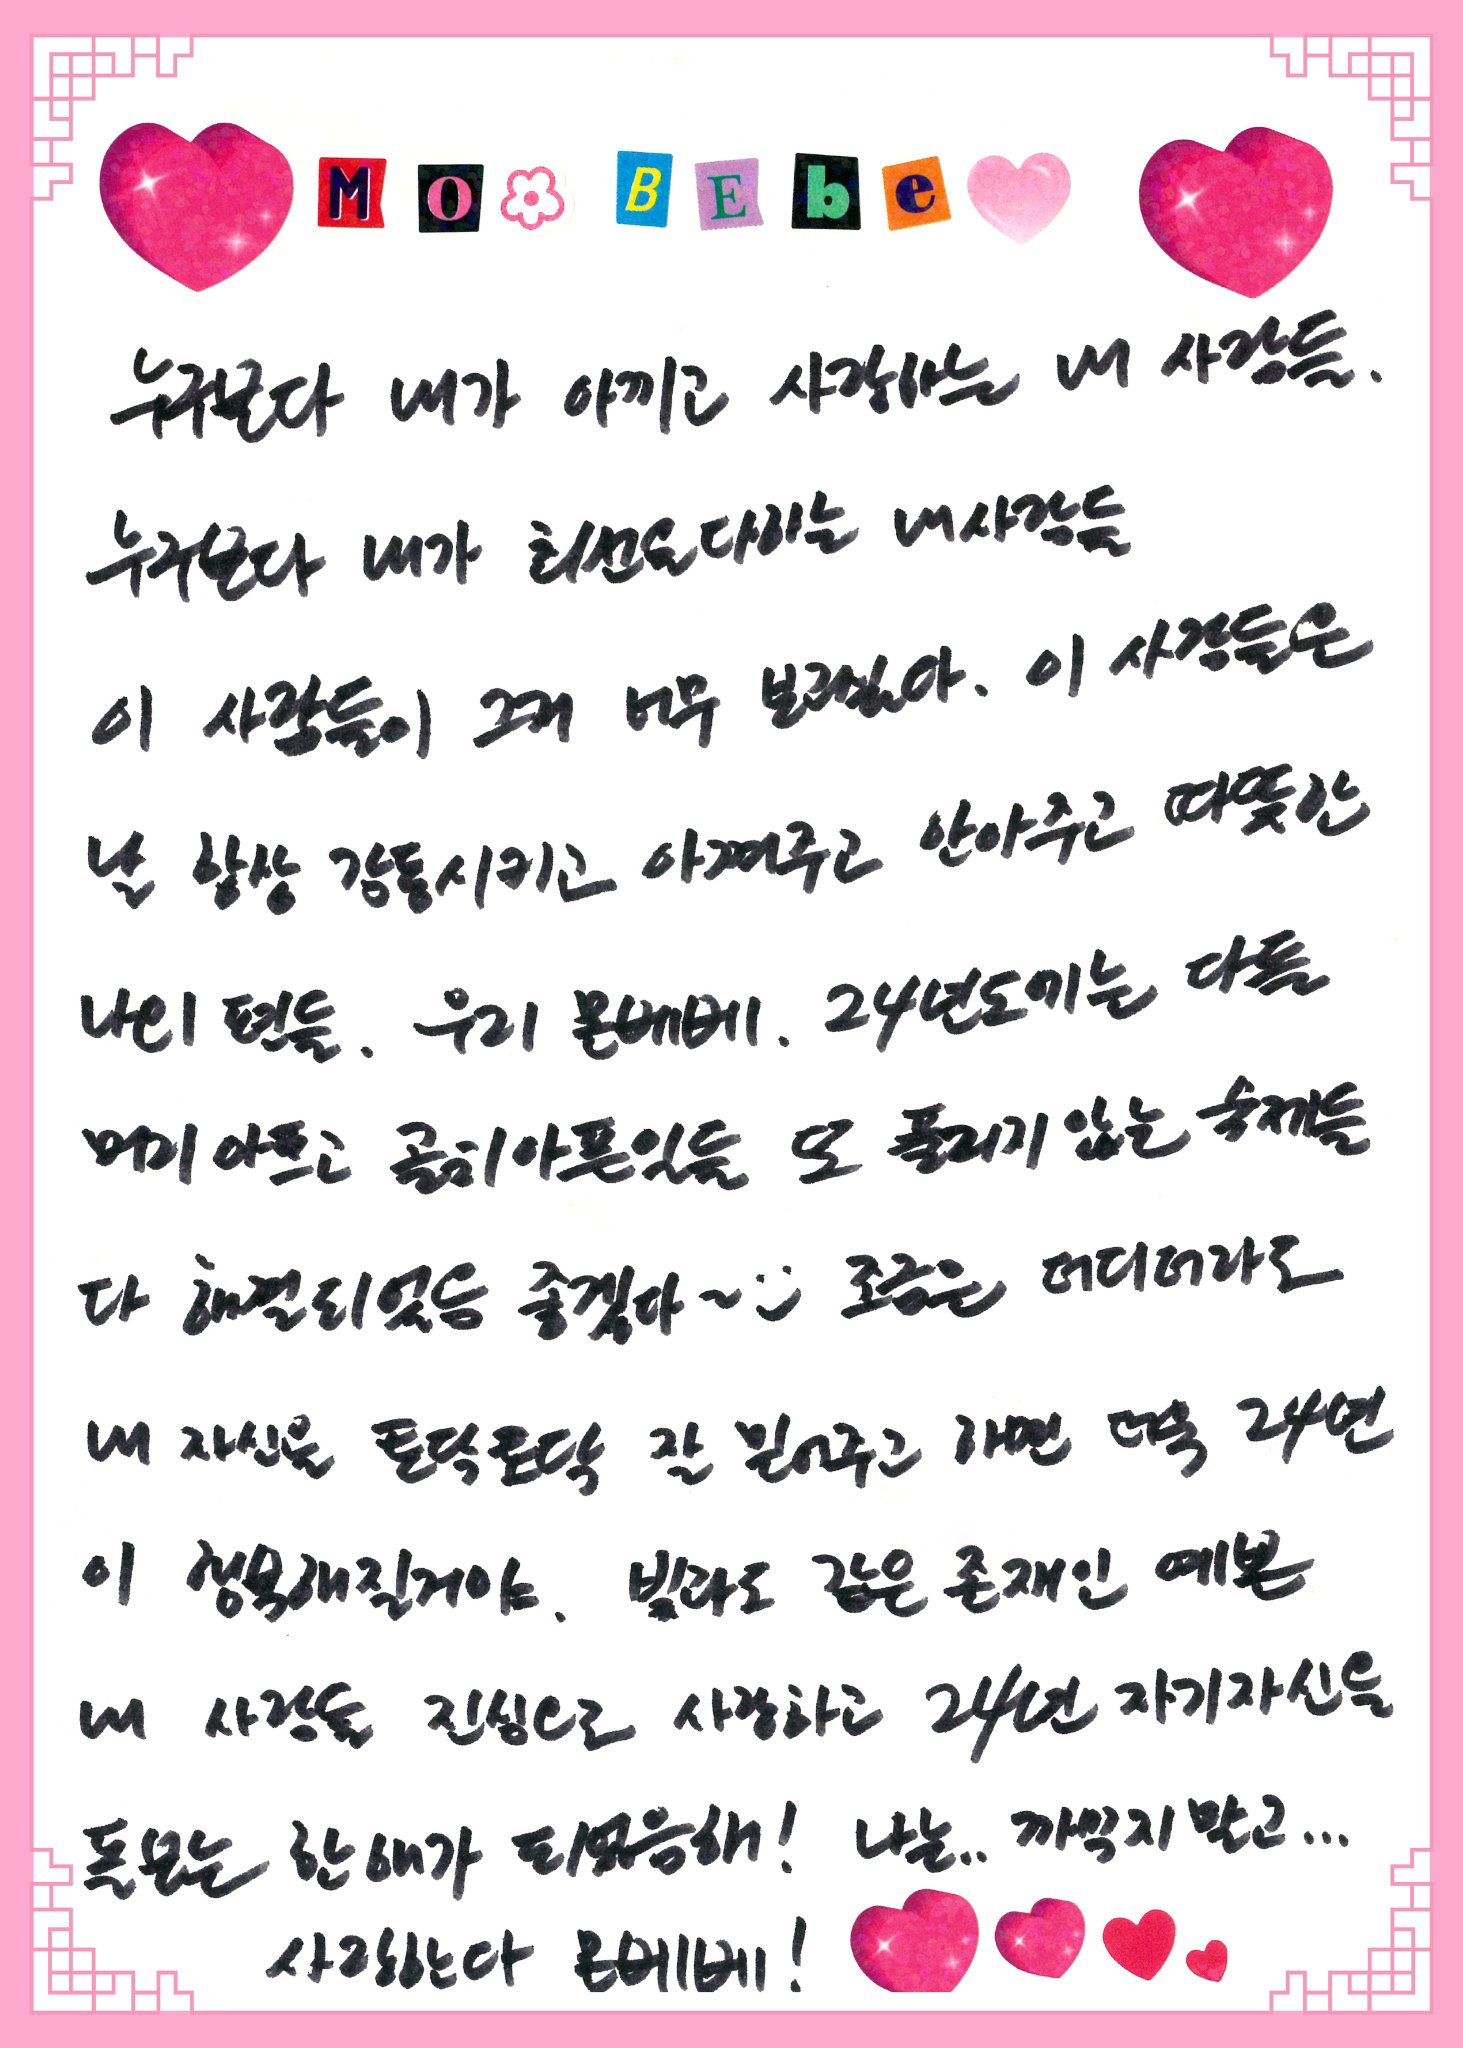 Mo BEbe
누구보다 내가 아끼고 사랑하는 내 사람들.
누구보다 내가 최선을다하는 내사람들
이 사람들이 그게 너무 보고싶다. 이 사람들은
날 항상 감동시키고 아껴주고 안아주고 따뜻한
나의 편들. 우리 몬베베. 24년도에는 다들
머리아프고 골치아픈일들 또 풀리지않는 숙제들
다 해결되었음 좋겠다~ 조금은 더디더라도
내 자신을 토닥토닥 잘 믿어주고 하면 더욱 24년
이 행복해질거야. 빛라도 같은 존재인 예쁜
내 사람들 진심으로 사랑하고 24년 자기자신을
돌보는 한해가 되었음해! 나는.. 까먹지말고...
사랑한다 몬베베!